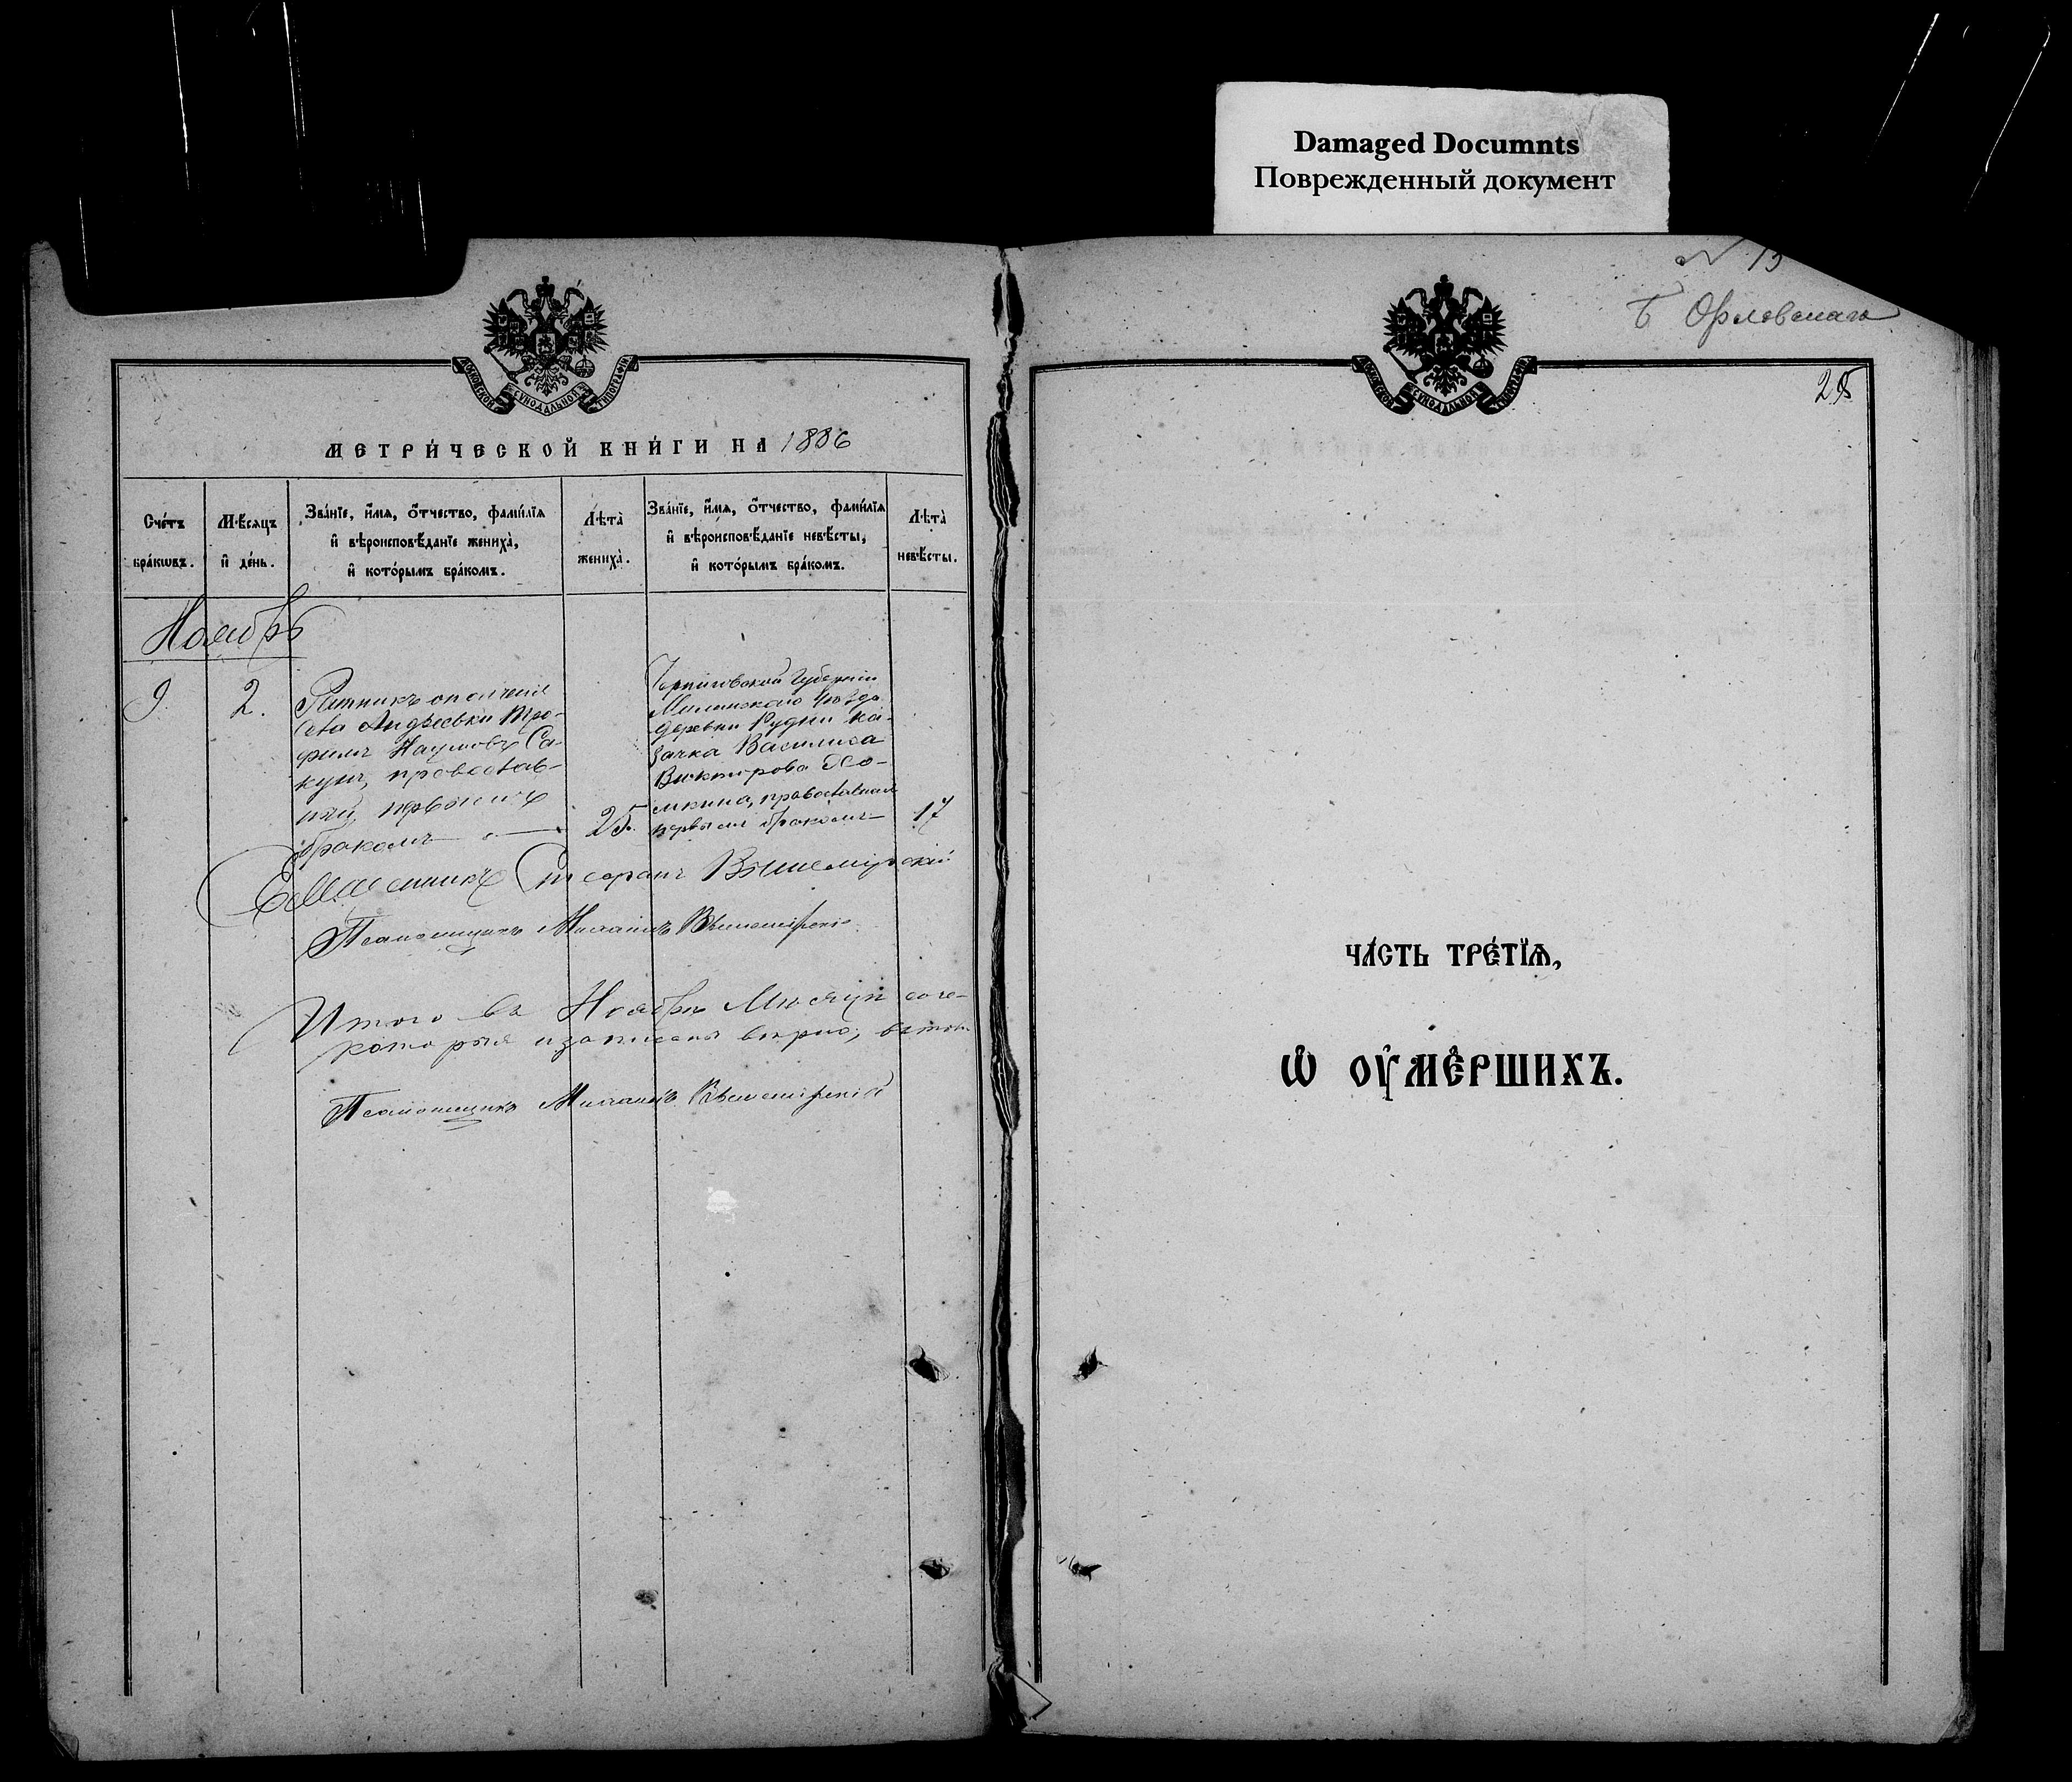 Damaged Documnts
Поврежденный документ
N 13
Б Орловскаго
МОСКОВСКОЙ СУНОДАЛЬНОЙ ТИПОГРАФІИ
МОСКОВСКОЙ СУНОДАЛЬНОЙ ТИПОГРАФІИ
25
МЕТРИ́ЧЕСКОЙ КНИ́ГИ НА 1886
Сче́тъ бра́кωвъ.
Мѣ́сяцъ и҆ де́нь.
Зва́нїе, и҆́мя, ѻ҆́тчество, фами́лїя
и҆ вѣроисповѣ́данїе жениха̀,
и҆ кото́рымъ бра́комъ.
Лѣта̀ жениха̀.
Зва́нїе, и҆́мя, ѻ҆́тчество, фами́лїя
и҆ вѣроисповѣ́данїе невѣ́сты,
и҆ кото́рымъ бра́комъ.
Лѣта̀ невѣ́сты.
Ноябрь
9
2.
Ратникъ ополченія
села Андреевки Тро-
фимъ Наумовъ Са-
кунъ, православ-
ный, первымъ
бракомъ
25.
Черниговской губерніи
Мглинскаго уѣзда
деревни Рудни ка-
зачка Василиса
Викторова Хо-
мкина, православная
первымъ бракомъ
17
Священникъ Стефанъ Вышемірскій
Псаломщикъ Михаилъ Вышемірскій
Итого въ Ноябрѣ Мѣсяцѣ соче-
которые и записаны вѣрно, въ томъ
Псаломщикъ Михаилъ Вышемірскій
ЧА́СТЬ ТРЕ́ТЇѦ,
Ѽ ОУ҆МЕ́РШИХЪ.